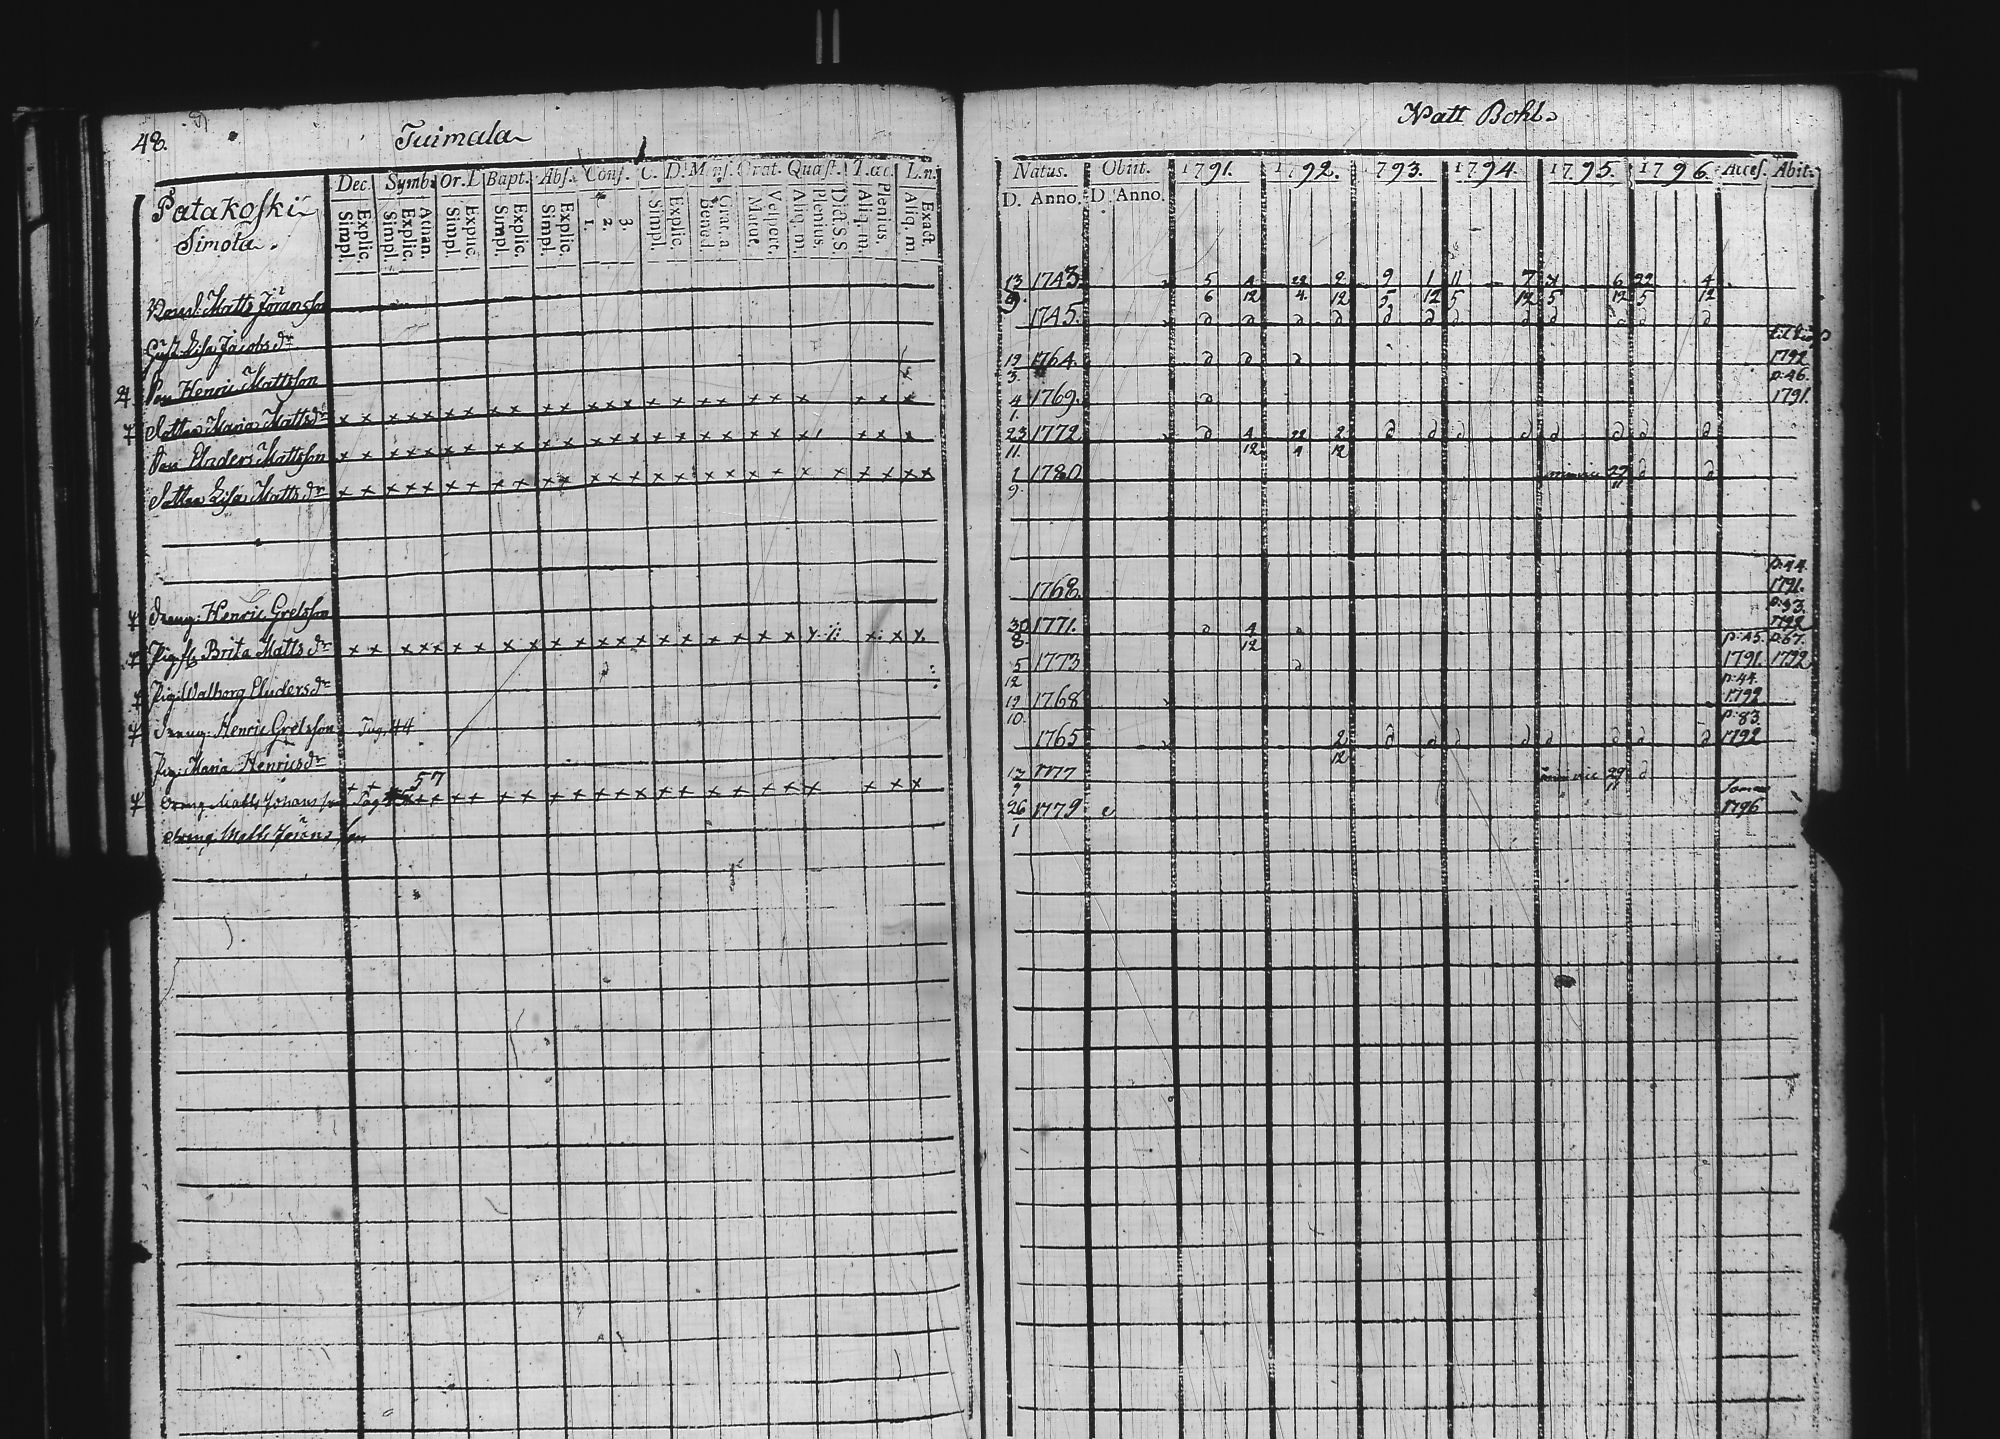 48.
Tuimala
Dec. Symb. Or. D Bapt. Abs. Conf. C. D. Mens. Orat. Quæst. T.ac. L.n.
Patakoski
Simola.
Simpl. Explic. Simpl. Explic. Athan. Simpl. Explic. Simpl. Explic. Simpl. Explic. 1. 2. 3. Simpl. Explic. Bened. Grat. a. Matut. Vespert. Aliq. m. Plenius. Dict. S.S. Aliq. m. Plenius. Aliq. m. Exact.
Matts Jöransson
Hust. Lisa Jacobs dr
Son Henric Mattsson
Dotter Maria Matts dr
Son Eluders Mattsson
Dotter Lisa Matts dr
Dreng. Henric Gretsson
Pig. Brita Matts dr
Pig. Walborg Eluders dr
Dreng. Henric Gretsson Pag. 44
Pig. Maria Henrics dr
57
Dreng. Matts Johansson Pag
Dreng Matts Jörans son
Natt Bohl.
Natus. Obiit. 1791. 1792. 1793. 1794. 1795. 1796. Acces. Abit.
D. Anno. D. Anno.
13 1743. 5 4 22 2 9 1 11 7 31 6 22 4
9. 6 12 4. 12 5 12 5 12 5 12 5 12
1745. d d d d d d d d d d d d
19 1764. d d d 1792
3. p. 46.
4 1769. d 1791.
1.
23 1772. d 4 22 2 d d d d d d d d
11. 12 4 12
1 1780 29 d d
9. 11
p. 44.
1768. 1791.
p. 93.
30 1771. d 4 d 1792
8. 12 p. 45. p. 67.
5 1773 d 1791. 1792
12 p. 44.
19 1768 1792
10. p. 83.
1765 2 d d d d d d d d 1792
12
13 1777 29 d
9 11
26 1779 1796
1